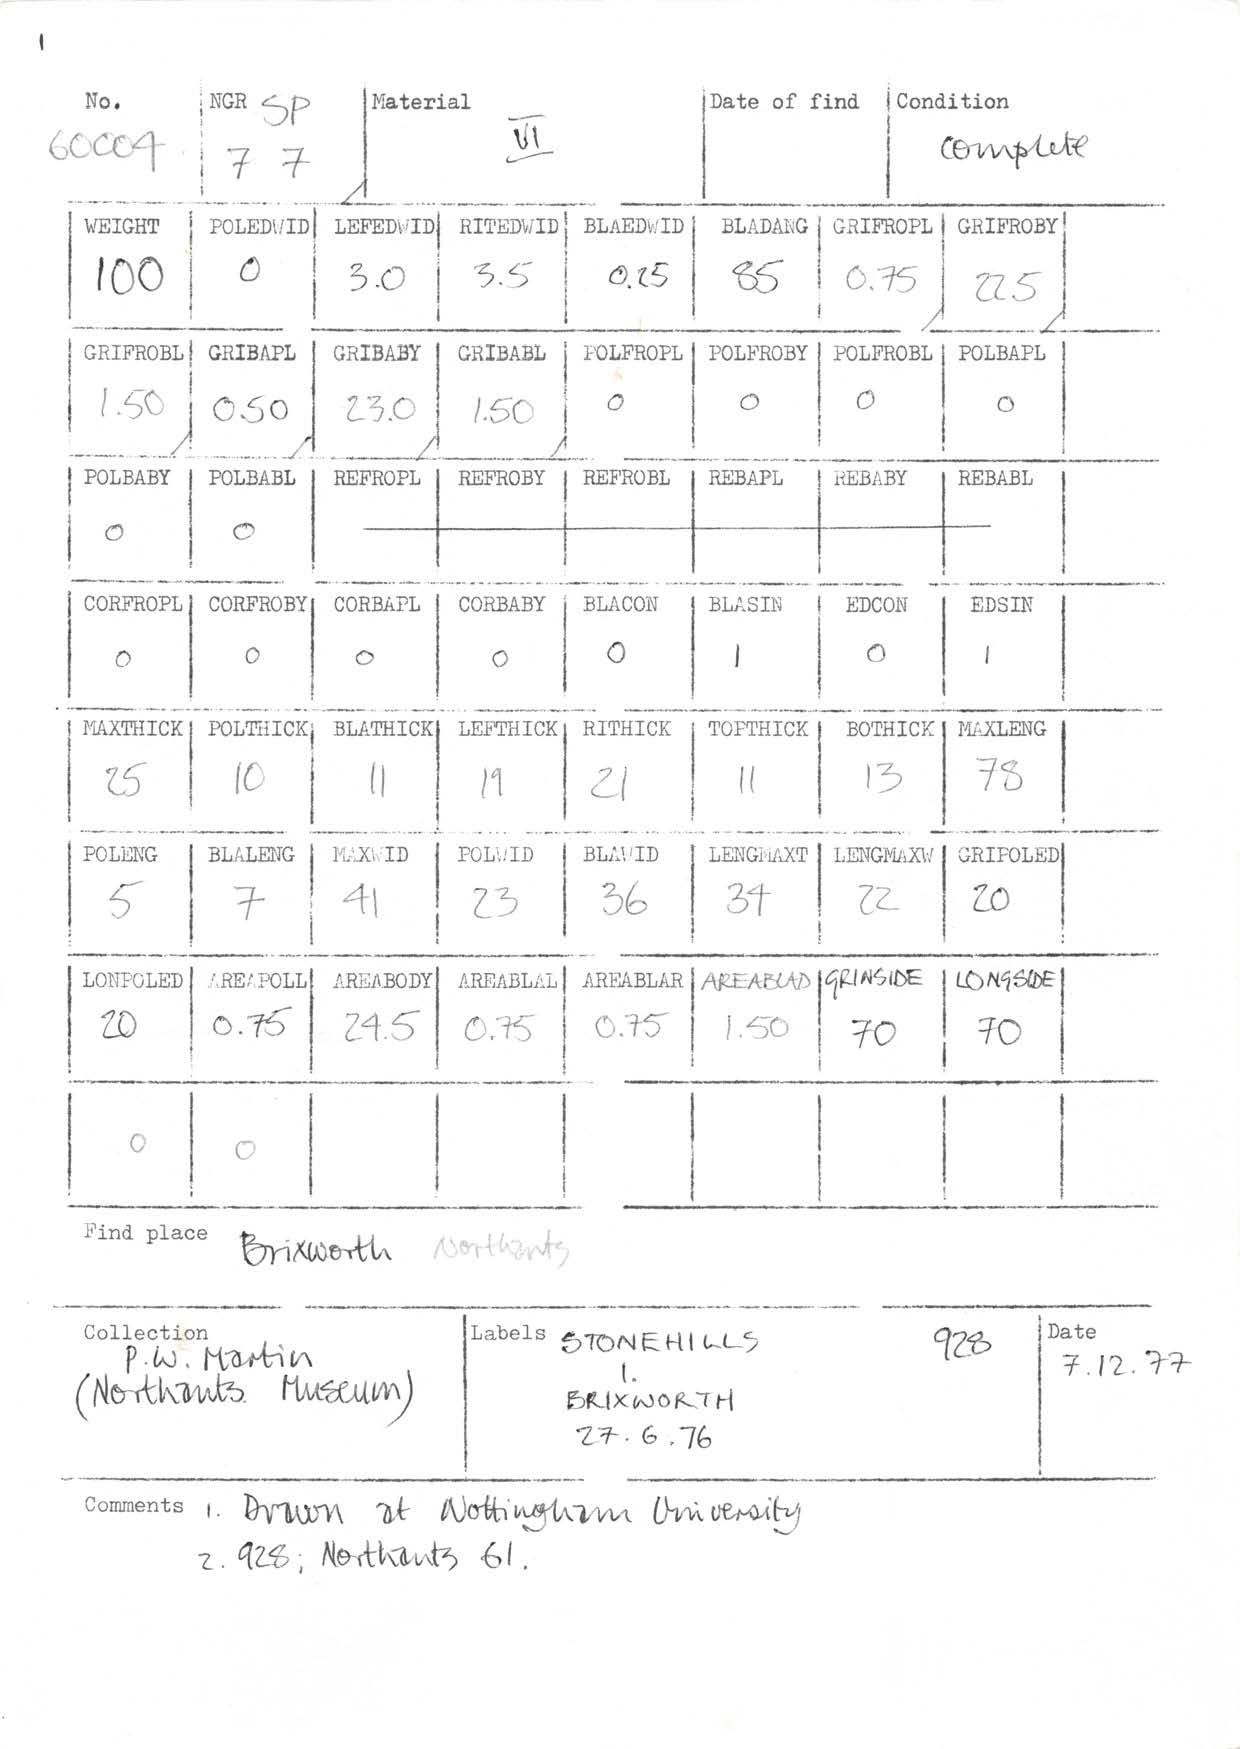 1
No. NGR SP Material Date of find Condition
60004 7 7 VI complete
WEIGHT POLEDWID LEFEDWID RITEDWID BLAEDWID BLADANG GRIFROPL GRIFROBY
100 0 3.0 3.5 0.25 85 0.75 22.5
GRIFROBL GRIBAPL GRIBABY GRIBABL POLFROPL POLFROBY POLFROBL POLBAPL
1.50 0.50 23.0 1.50 0 0 0 0
POLBABY POLBABL REFROPL REFROBY REFROBL REBAPL REBABY REBABL
0 0
CORFROPL CORFROBY CORBAPL CORBABY BLACON BLASIN EDCON EDSIN
0 0 0 0 0 1 0 1
MAXTHICK POLTHICK BLATHICK LEFTHICK RITHICK TOPTHICK BOTHICK MAXLENG
25 10 11 19 21 11 13 78
POLENG BLALENG MAXWID POLWID BLAWID LENGMAXT LENGMAXW GRIPOLED
5 7 41 23 36 34 22 20
LONPOLED AREAPOLL AREABODY AREABLAL AREABLAR AREABLAD GRINSIDE LONGSIDE
20 0.75 24.5 0.75 0.75 1.50 70 70
0 0
Find place Brixworth Northants
Collection Labels STONEHILLS 928 Date
P.W. Martin 1. 7.12.77
(Northants Museum) BRIXWORTH
27.6.76
Comments 1. Drawn at Nottingham University
2. 928; Northants 61.